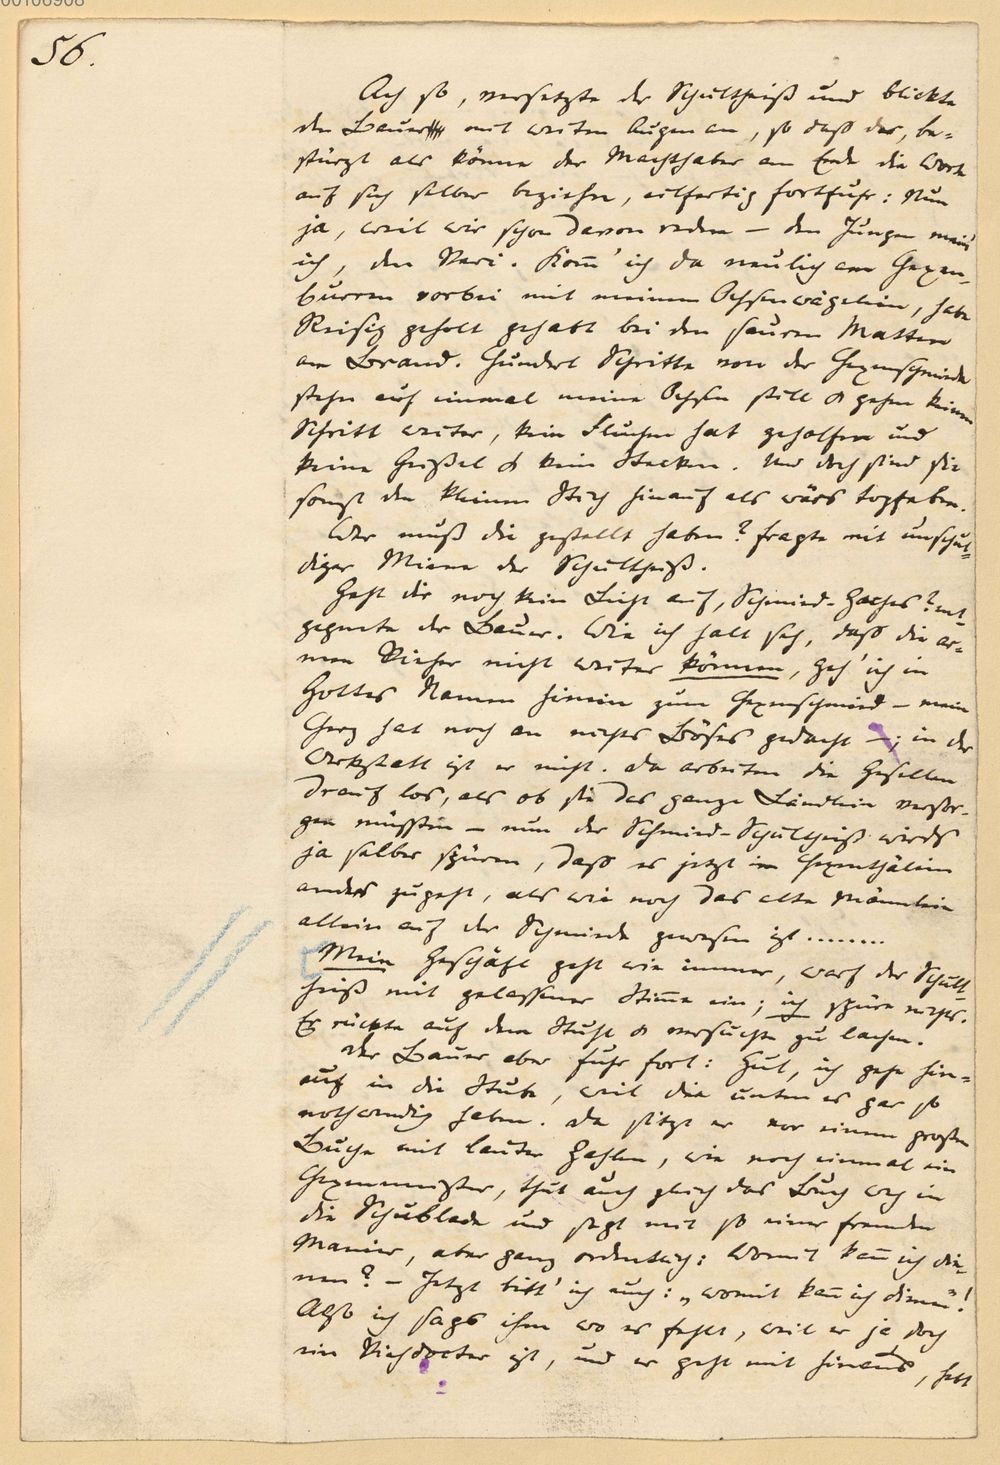 00106908
56.
Ach so, versetzte der Schultheiß und blickte
den Bauer mit weiten Augen an, so daß der, be-
stürzt als könne der Machthaber am Ende die Worte
auf sich selber beziehn, eilfertig fortfuhr: Nun
ja, weil wir schon davon reden — den Jungen mein'
ich, den Veri. Kom̅' ich da neulich am Hexen-
burren vorbei mit meinem Ochsenwägelein, habe
Reisig geholt gehabt bei den sauren Matten
am Brand. Hundert Schritte von der Hexenschmiede
stehn auf einmal meine Ochsen still & gehen keinen
Schritt weiter, kein Fluchen hat geholfen und
keine Geißel & kein Stecken. Und doch sind sie
sonst den kleinen Stich hinauf als wärs topfeben.
Wer muß die gestellt haben? fragte mit unschul-
diger Miene der Schultheiß.
Geht dir noch kein Licht auf, Schmied-Baches? ent-
gegnete der Bauer. Wie ich halt seh, daß die ar-
men Viecher nicht weiter können, geh' ich in
Gottes Namen hinein zum Hexenschmied — mein
Herz hat noch an nichts Böses gedacht —; in der
Werkstatt ist er nicht. Da arbeiten die Gesellen
drauf los, als ob sie das ganze Ländlein versor-
gen müßten — nun der Schmied-Schultheiß wirds
ja selber spüren, daß es jetzt im Hexenthälein
anders zugeht, als wie noch das alte Männlein
allein auf der Schmiede gewesen ist ........
Mein Geschäft geht wie immer, warf der Schult-
heiß mit gelassener Stim̅e ein; ich spüre nichts.
Er rückte auf dem Stuhl & versuchte zu lachen.
Der Bauer aber fuhr fort: Gut, ich gehe hin-
auf in die Stube, weil die unten es gar so
nothwendig haben. Da sitzt er vor einem großen
Buche mit lauter Zahlen, wie noch einmal ein
Hexenmeister, thut auch gleich das Buch weg in
die Schublade und sagt mit so einer fremden
Manier, aber ganz ordentlich: Womit kan̅ ich die-
nen? — Jetzt bitt' ich euch: „womit kan̅ ich dienen"!
Also ich sags ihm wo es fehlt, weil er ja doch
ein Viehdocter ist, und er geht mit hinaus, hebt